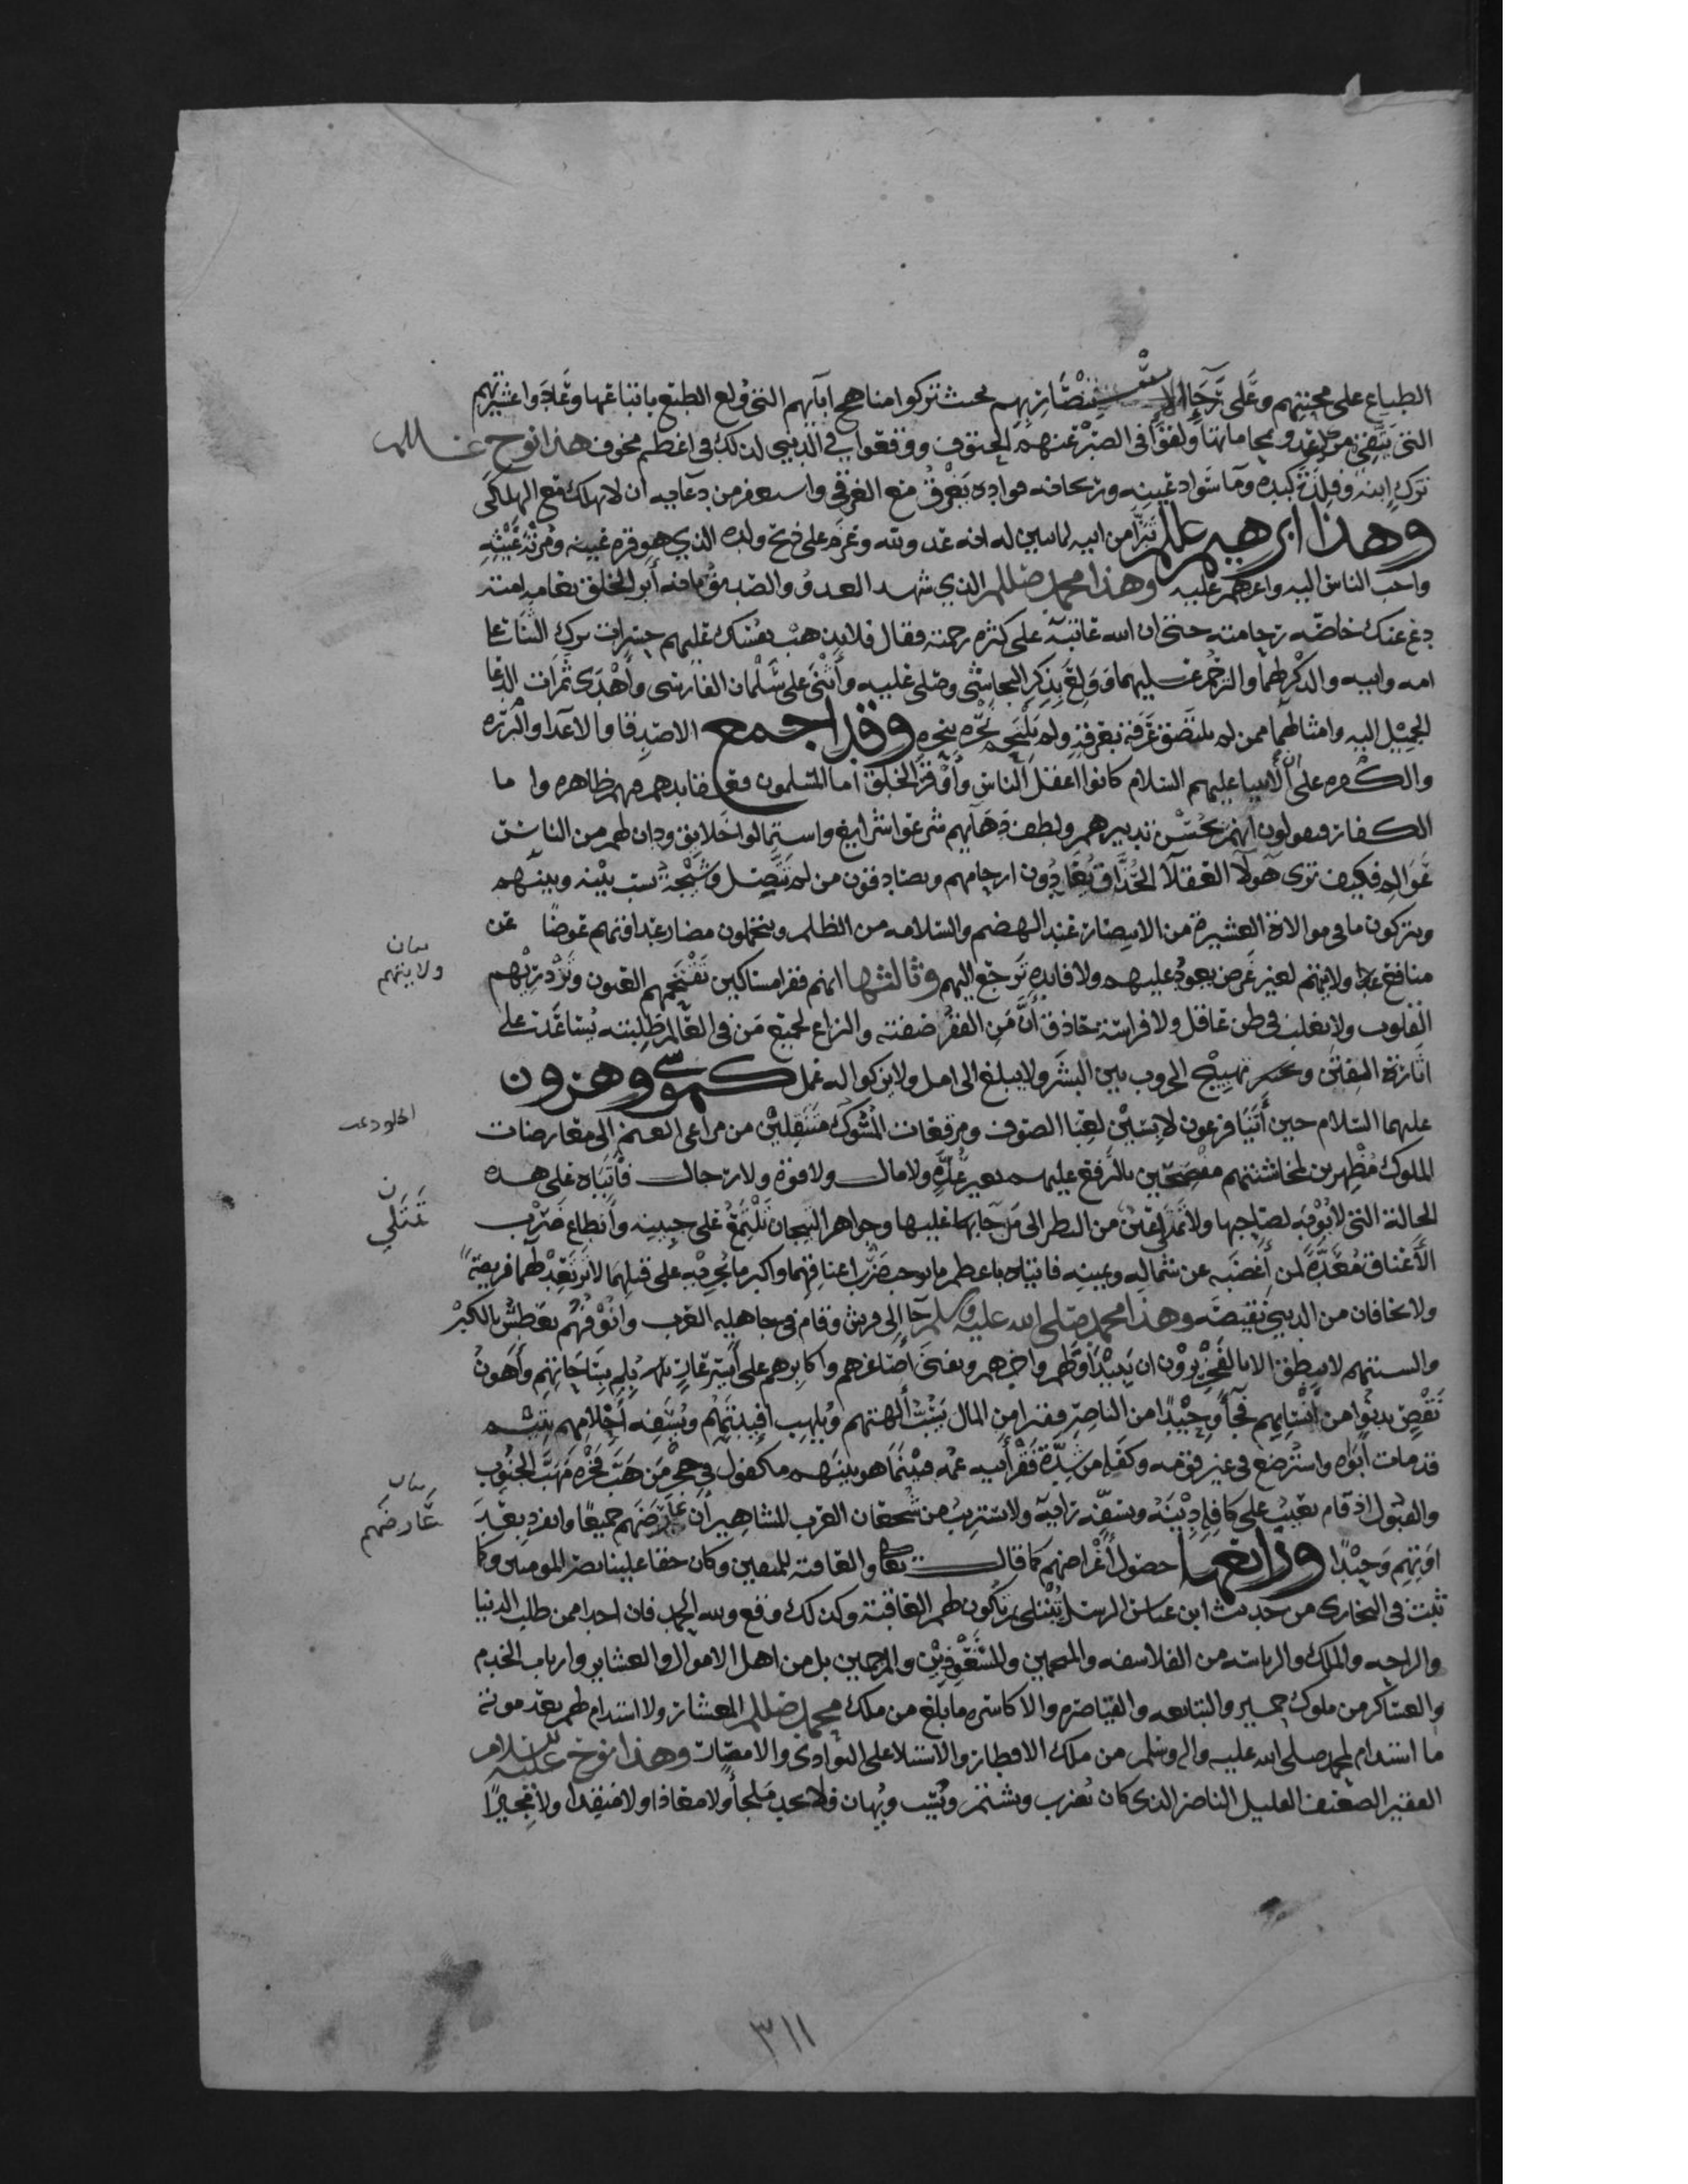 الطباع على محبتهم وعلى رجاء الاستنصار بهم بحيث تركوا مناهج ابآئهم التي ولع الطبع باتباعها وعادوا عشيرتهم
التي يتقى من العدو بمحاماتها ولقوا في الصبر عنهم الحتوف ووقعوا في الدنيا لذلك في اعظم مخوف هذا نوح علىلم
ترك ابنه وفلذة كبده وما سواد عينيه وريحانة فواده يغرق مع الغرقى واستغفر من دعائه ان لا يهلك مع الهلكى
وهذا ابرهيم علىلم تبرأ من ابيه لما تبين له انه عدو لله وعزم على ذبح ولده الذي هو قرة عينيه
واحب الناس اليه واعزهم عليه وهذا محمد صللم الذي شهد العدو والصديق بانه أبر الخلق بعامه امته
دع عنك خاصه رحامته حتى ان الله عاتبه على كثره رحمته فقال فلا تذهب نفسك عليهم حسرات ترك الثنا على
امه وابيه والذكر لهما والترحم عليهما وولع بذكر النجاشي وصلى عليه وأثنى على سلمان الفارسى وأهدى ثمرات الدعا
الجميل اليه وامثالهما ممن لم يلتصق عرقه بعرقه ولم نجره بنجره وقد اجمع الاصدقا والاعدا والبرره
والكفره على ان الأنبيا عليهم السلام كانوا اعقل الناس وأوقر الخلق اما المسلمون فعقائدهم فيهم ظاهره واما
الكفار فيقولون انهم بحسن تدبيرهم ولطف دهآئهم شرعوا شرايع واستمالوا خلايق ودان لهم من الناس
عوالم فكيف ترى هولآ العقلآ الحذاق يعادون ارحامهم ويصادقون من لم تتصل وشيجة نسب بينه وبينهم
ويتركون ما في موالاة العشيرة من الانتصار عند الهضم والسلامه من الظلم ويتحملون مضار عداوتهم عوضًا عن
منافع ولايتهم لغير غرض يعود عليهم ولا فايده ترجع اليهم وثالثها انهم فقرا مساكين تقتحمهم العيون وتزدريهم
القلوب ولا يغلب في ظن عاقل ولا فراسة حاذق أن من الفقر صفته والنزاع لجميع من في العالم طلبته يساعد على
اثارة الفتن تهييج الحروب بين البشر ولا يبلغ الى امل ولا يزكو اله عمل كموسى وهرون
عليهما السلام حين أتيا فرعون لابسين لعبا الصوف ومرقعات المسوك متنقلين من مراعى الغنم الى معارضات
الملوك مظهرين لمخاشنتهم مفصحين بالترفع عليهم بغير عدة ولا مال ولا قوة ولا رجال فأتياه على هذه
الحالة التي لا يوبه لصاحبها ولا تمتلي عين من النظر الى من جآ بها عليها وجواهر التيجان تلتمع على جبينه وأنطاع ضرب
الأعناق معدة لمن أغضبه عن شماله ويمينه فاتياه باعظم ما يوجب ضرب اعناقهما واكبر ما يجرى به على قتلهما لا يرتعد لهما فريصة
ولا يخافان من الدنيا نقيصة وهذا محمد صلى الله عليه وسلم جآ الى قريش وقام في جاهليه العرب وانوفهم تعطس بالكبر
والسنتهم لا تنطق الا بالفخر يرون ان يبيد أولهم واخرهم ويفنى أصاغرهم واكابرهم على بساحاتهم وأهون
نقص يدنوا من أنسابهم فجآ وحيدًا من الناصر فقيرا من المال يسب ألهتهم ويلهب افيدتهم ويسفه أحلامهم يتيم
قد مات أبواه واسترضع في غير قومه وكفله من شدة فقر أبيه عمه فبينما هو بينهم مكفول في حجر من هب فخره مهب الجنوب
والقبول اذ قام يعيب على كافله دينه ويسفه رايه ولا يستريب من شجعان العرب المشاهير أن عارضهم جميعًا وانفرد بعد
اوبتهم وحيدًا ورابعها حصول أغراضهم كما قال تعالى والعاقبة للمتقين وكان حقا علينا نصر المومنين وكما
ثبت في البخارى من حديث ابن عباس الرسل تبتلى ثم تكون لهم العاقبة وكذلك وقع ولله الحمد فان احدا ممن طلب الدنيا
والراحه والملك والرياسه من الفلاسفه والمنجمين والمشعوذين والمترجمين بل من اهل الاموال والعشاير وارباب الخدم
والعساكر من ملوك حمير والتبابعه والقياصره والاكاسره ما بلغ من ملك محمد صللم المعشار ولا استدام لهم بعد موته
ما استدام لمحمد صلى الله عليه واله وسلم من ملك الاقطار والاستيلا على البوادى والامصار وهذا نوح عليه السلام
الفقير الضعيف القليل الناصر الذى كان يضرب ويشتم ويسب ويهان فلا يجد ملجأ ولا معاذا ولا منقذا ولا مجيرًا
بيان
ولايتهم
ن
تمتلي
بيان
عارضهم
٣١١